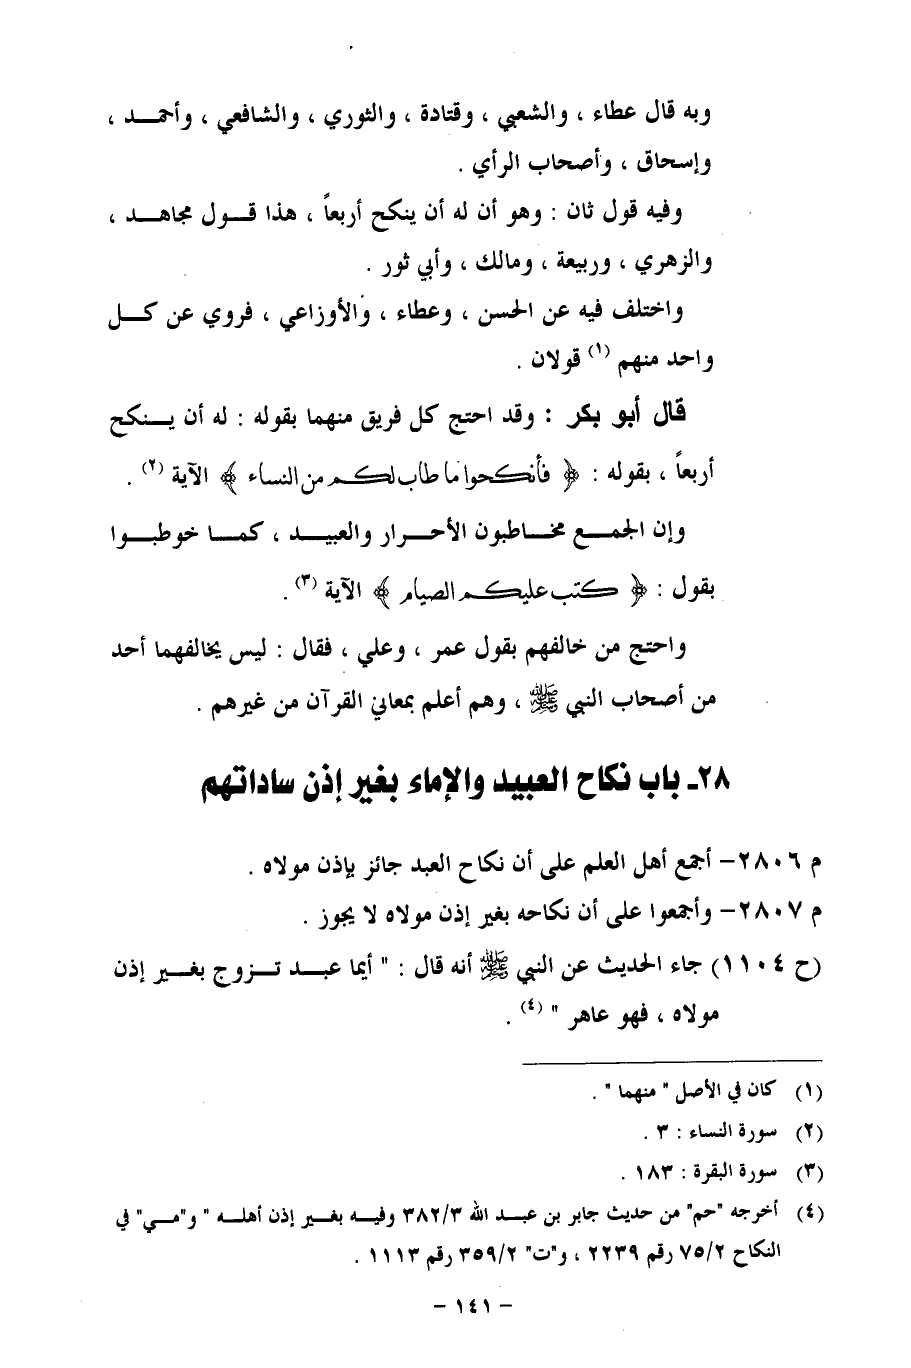 وبه قال عطاء ، والشعبي ، وقتادة ، والثوري ، والشافعي ، وأحمـد ،
وإسحاق ، وأصحاب الرأي .
وفيه قول ثان : وهو أن له أن ينكح أربعاً ، هذا قـول مجاهـد ،
والزهري ، وربيعة ، ومالك ، وأبي ثور .
واختلف فيه عن الحسن ، وعطاء ، والأوزاعي ، فروي عن كـل
واحد منهم (١) قولان .
قال أبو بكر : وقد احتج كل فريق منهما بقوله : له أن يـنكح
أربعاً ، بقوله : ﴿ فأنكحوا ما طاب لكم من النساء ﴾ الآية (٢) .
وإن الجمـع مخـاطبون الأحـرار والعبيـد ، كمـا خوطبـوا
بقول : ﴿ كتب عليكم الصيام ﴾ الآية (٣) .
واحتج من خالفهم بقول عمر ، وعلي ، فقال : ليس يخالفهما أحد
من أصحاب النبي ﷺ ، وهم أعلم بمعاني القرآن من غيرهم .
٢٨ـ باب نكاح العبيد والإماء بغير إذن ساداتهم
م ٢٨٠٦– أجمع أهل العلم على أن نكاح العبد جائز بإذن مولاه .
م ٢٨٠٧– وأجمعوا على أن نكاحه بغير إذن مولاه لا يجوز .
(ح ١١٠٤) جاء الحديث عن النبي ﷺ أنه قال : " أيما عبـد تـزوج بغـير إذن
مولاه ، فهو عاهر " (٤) .
(١) كان في الأصل " منهما " .
(٢) سورة النساء : ٣ .
(٣) سورة البقرة : ١٨٣ .
(٤) أخرجه "حم" من حديث جابر بن عبـد الله ٣٨٢/٣ وفيـه بغـير إذن أهلـه " و"مـي" في
النكاح ٧٥/٢ رقم ٢٢٣٩ ، و"ت" ٣٥٩/٢ رقم ١١١٣ .
– ١٤١ –